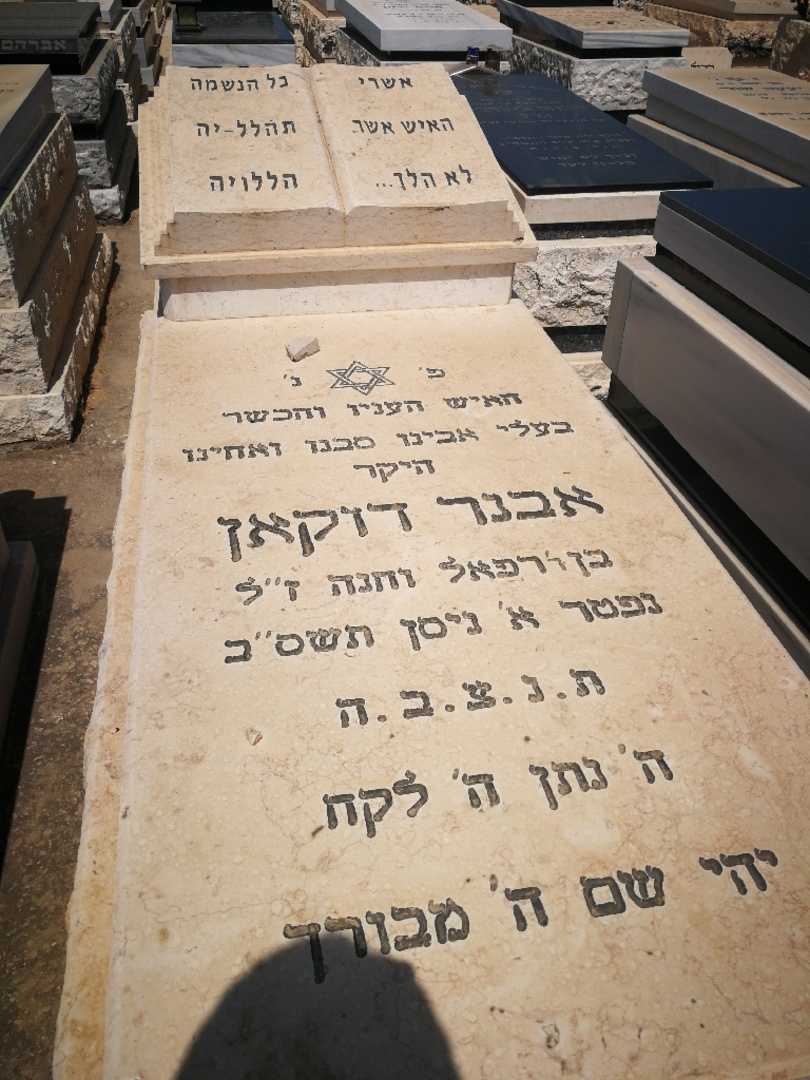 אשרי
האיש אשר
לא הלך...
כל הנשמה
תהלל-יה
הללויה
פ' נ'
האיש העניו והכשר
בעלי אבינו סבנו ואחינו
היקר
אבנר דוקאן
בן ר' רפאל וחנה ז"ל
נפטר א' ניסן תשס"ב
ת.נ.צ.ב.ה
ה' נתן ה' לקח
יהי שם ה' מבורך
אברהם